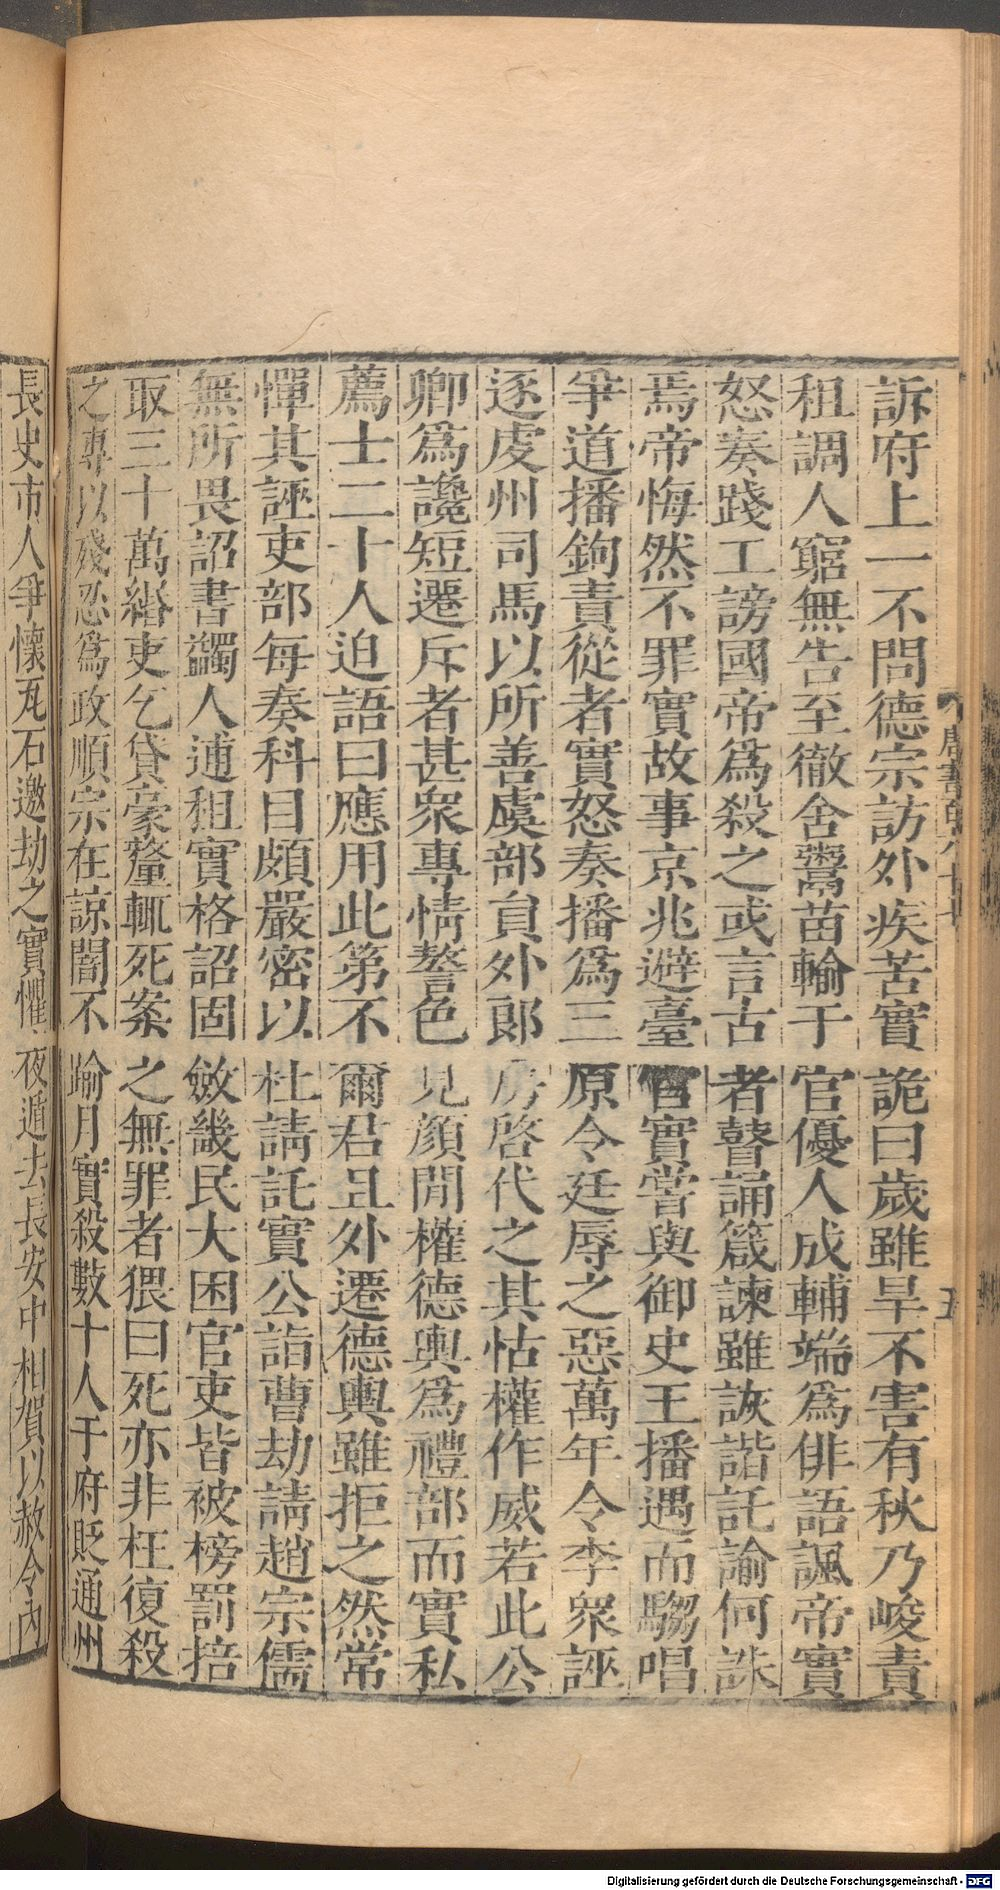 訴府上一不問德宗訪外疾苦實詭曰歲雖旱不害有秋乃峻責
租調人窮無告至徹舍鬻苗輸于官優人成輔端爲俳語諷帝實
怒奏踐工謗國帝爲殺之或言古者瞽誦箴諫雖詼諧託諭何誅
焉帝悔然不罪實故事京兆避臺官實嘗與御史王播遇而騶唱
爭道播鉤責從者實怒奏播爲三原令廷辱之惡萬年令李衆誣
逐虔州司馬以所善虞部員外郎房啓代之其怙權作威若此公
卿爲讒短遷斥者甚衆專情謷色見顔閒權德輿爲禮部而實私
薦士二十人迫語曰應用此第不爾君且外遷德輿雖拒之然常
憚其誣吏部每奏科目頗嚴密以杜請託實公詣曹劫請趙宗儒
無所畏詔書蠲人逋租實格詔固斂畿民大困官吏皆被榜罰掊
取三十萬緡吏乞貸豪釐輒死案之無罪者猥曰死亦非枉復殺
之專以殘忍爲政順宗在諒闇不踰月實殺數十人于府貶通州
長史市人爭懷瓦石邀劫之實懼夜遁去長安中相賀以赦令內
五
Digitalisierung gefördert durch die Deutsche Forschungsgemeinschaft - DFG